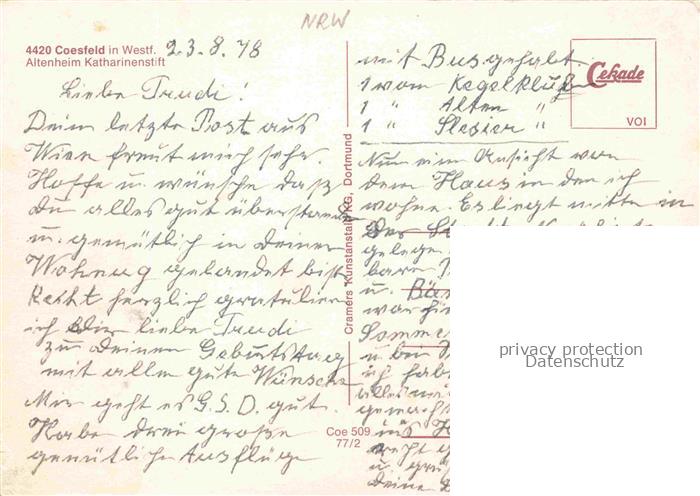 NRW
4420 Coesfeld in Westf.
Altenheim Katharinenstift
23.8.78
Liebe Trudi!
Dein letzte Post aus
Wien freut mich sehr.
Hoffe u. wünsche daß
du alles gut überstanden
u. gemütlich in deiner
Wohnung gelandet bist
Recht herzlich gratulier
ich Dir liebe Trudi
zu Deinen Geburtstag
mit alle gute Wünsche
Mir geht es G.S.D. gut.
Habe drei große
gemütliche Ausflüge
Cramers Kunstanstalt KG, Dortmund
Coe 509
77/2
mit Bus gehabt.
1 vom Kegelklub
1 " Alten "
1 " Slesier "
Nun eine Ansicht von
dem Haus in den ich
wohne. Es liegt mitte in
der
gelege
bare
u. Bä
war hi
Somme
u. bei
ich hab
alles mi
gemach
ins
recht
u. grü
Deine
Cekade
VOI
privacy protection
Datenschutz